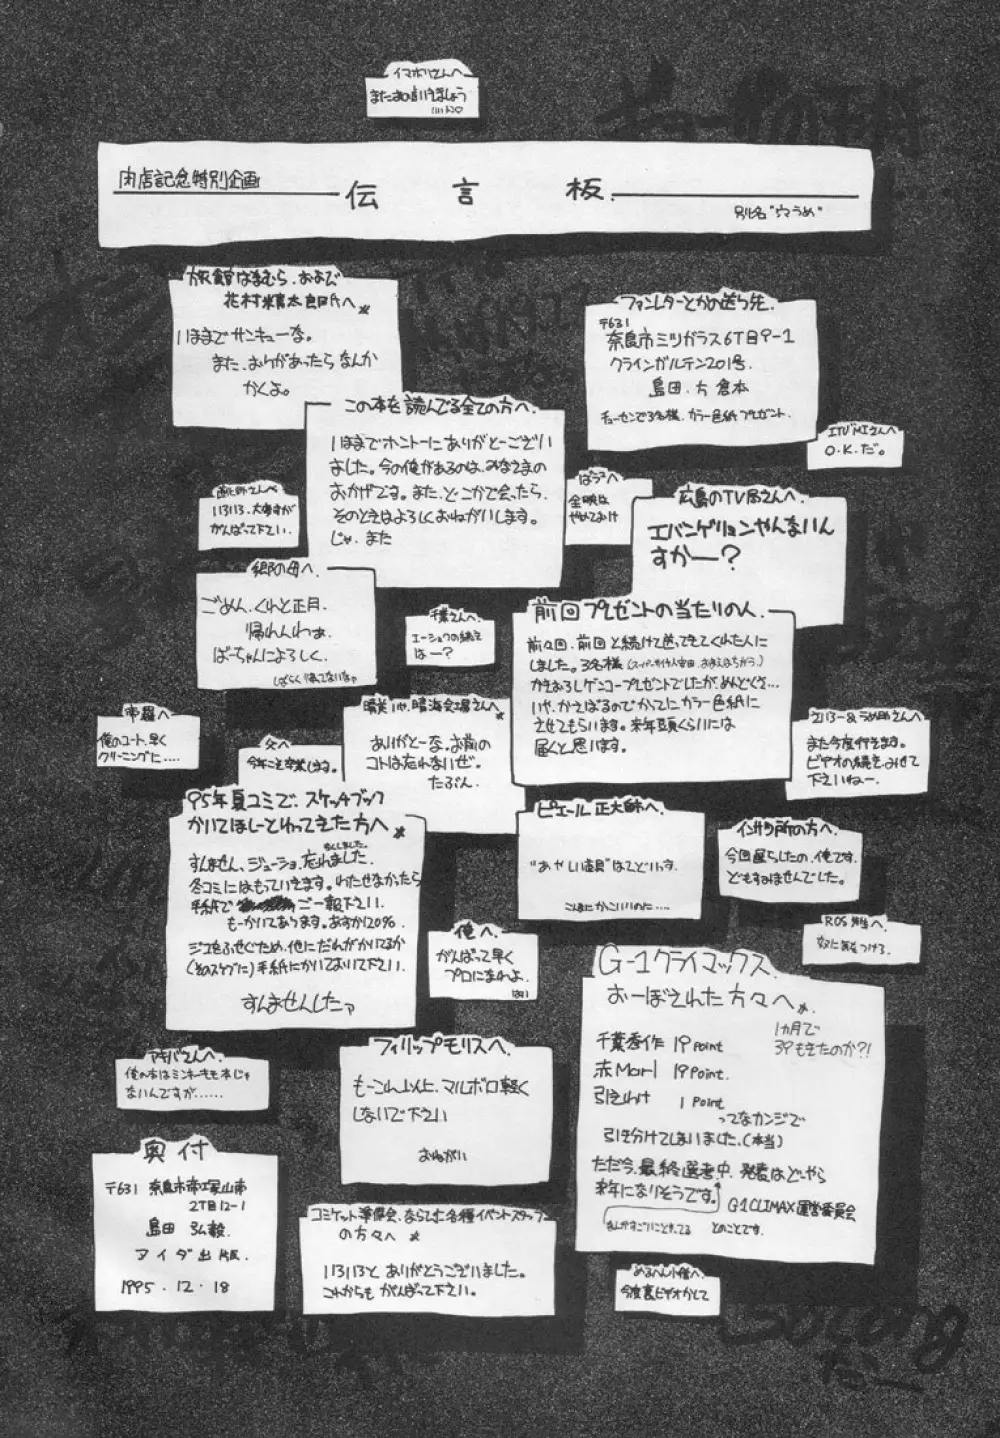 イマホリさんへ
またお会いしましょう
肉店記念特別企画
伝言板
別名"穴うめ"
旅館はまむら、および
花村米貴太郎氏へ
いままでサンキューな。
また、おりがあったらなんか
かくよ。
ファンレターとかの送り先
〒631
奈良市ミツガラス6丁目9-1
クラインガルテン201号
島田 方 倉本
チューセンで3名様、カラー色紙プレゼント。
この本を読んでる全ての方へ
いままでホントーにありがとーござい
ました。今の俺があるのは、みなさまの
おかげです。また、どこかで会ったら、
そのときはよろしくおねがいします。
じゃ、また
さんへ
O.K.だ。
いろいろ、大変すが
がんばって下さい。
やめておけ
広島のTV局さんへ
エバンゲリヨンやんないん
すかー?
郷の母へ
ごめん、くれと正月、
帰れんわぁ
ばーちゃんによろしく。
しばらく帰ってないなァ
千葉さんへ
エーショウの続き
はー?
前回プレゼントの当たりの人
前々回、前回と続けて送ってきてくれた人に
しました。3名様
かきおろしゲンコープレゼントでしたが、めんどくさ…
いや、かさばるのでかってにカラー色紙に
させてもらいます。来年頭くらいには
届くと思います。
帝羅へ
俺のコート、早く
クリーニングに……
父へ
今年こそ卒業します。
晴美いや、晴海会場さんへ
ありがとーな。お前の
コトは忘れないぜ。
たぶん。
さんへ
また今度行きます。
ビデオの続き、みせて
下さいねー。
95年夏コミで、スケッチブック
かいてほしーとわってきた方へ
すんません、ジューショ、忘れました。
冬コミにはもっていきます。わたせなかったら
手紙で ご一報下さい。
もーかいてあります。あすか120%
ジコをふせぐため、他にだれがかいてるか
(そのスケブに)手紙にかいておいて下さい。
すんませんしたァ
ピエール正大師へ
"あやしい道具"はどいっす。
印サツ所の方へ
今回遅らしたの、俺です。
どもすみませんでした。
ROS先生へ
奴に気をつけろ。
俺へ
がんばって早く
プロになれよ。
はい
G-1クライマックス
おーぼされた方々へ
1カ月で
39もきたのか?!
千葉秀作 19point
赤Mari 19Point
引きわけ 1Point
ってなカンジで
引き分けてしまいました。(本当)
ただ今、最終選考中、発表はどーやら
来年になりそうです。
G-1 CLIMAX運営委員会
とのことです。
アキバさんへ
俺の本はミンキーモモ本じゃ
ないんですが……
フィリップモリスへ
もーこれ以上、マルボロ軽く
しないで下さい
おねがい
奥付
〒631 奈良市帝塚山南
2丁目12-1
島田 弘毅
アイダ出版
1995.12.18
コミケット準備会、ならびに各種イベントスタッフ
の方々へ
いろいろと、ありがとうございました。
これからも がんばって下さい。
今度裏ビデオかして